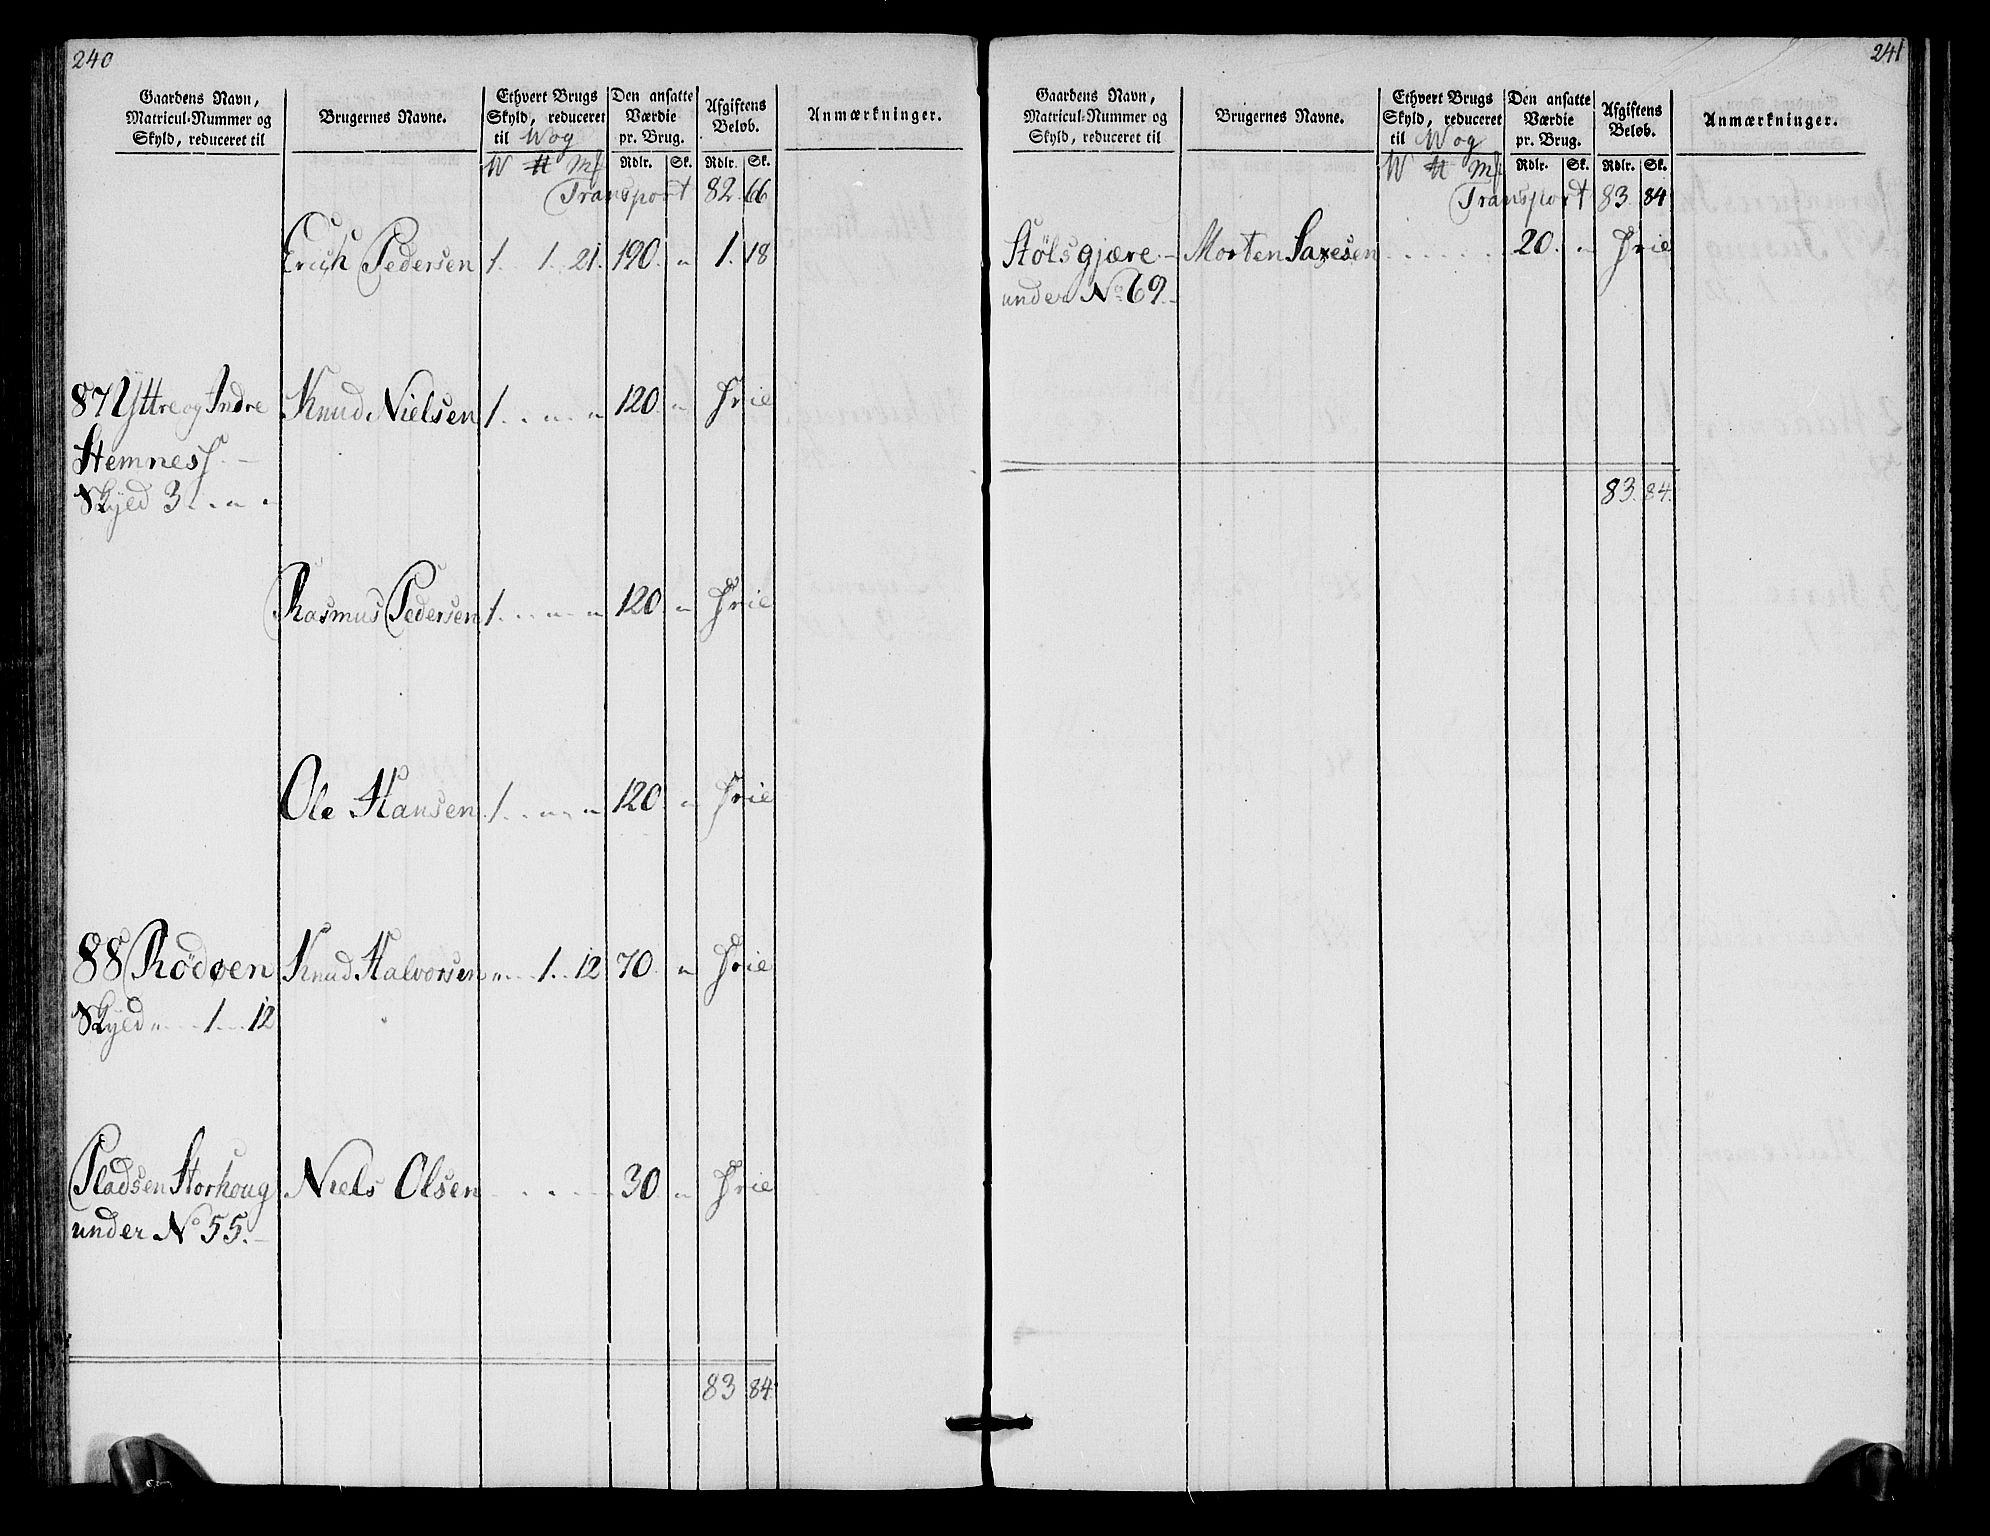 240
Gaardens Navn, Matricul-Nummer og Skyld, reduceret til
Brugernes Navne.
Ethvert Brugs Skyld, reduceret til Wog
Den ansatte Værdie pr. Brug.
Afgiftens Beløb.
Anmærkninger.
W ℔ Mk Rdlr. Sk. Rdlr. Sk.
Transport 82 66
Erich Pedersen 1. 1. 21. 190. " 1. 18
87 Yttre og Indre Knud Nielsen 1. " " 120. " Frie
Stemness
Skyld 3. " "
Rasmus Pedersen 1. " " 120 " Frie
Ole Hansen 1. " " 120 " Frie
88 Rödøen Knud Halvorsen " 1. 12 70. " Frie
Skyld " 1. 12
Pladsen Storhoug Niels Olsen 30 " Frie
under No 55.
83 84
241
Gaardens Navn, Matricul-Nummer og Skyld, reduceret til
Brugernes Navne.
Ethvert Brugs Skyld, reduceret til Wog
Den ansatte Værdie pr. Brug.
Afgiftens Beløb.
Anmærkninger.
W ℔ Mk Rdlr. Sk. Rdlr. Sk.
Transport 83 84
Stölsgjære Morten Saxesen 20. " Frie
under No 69.
83. 84.